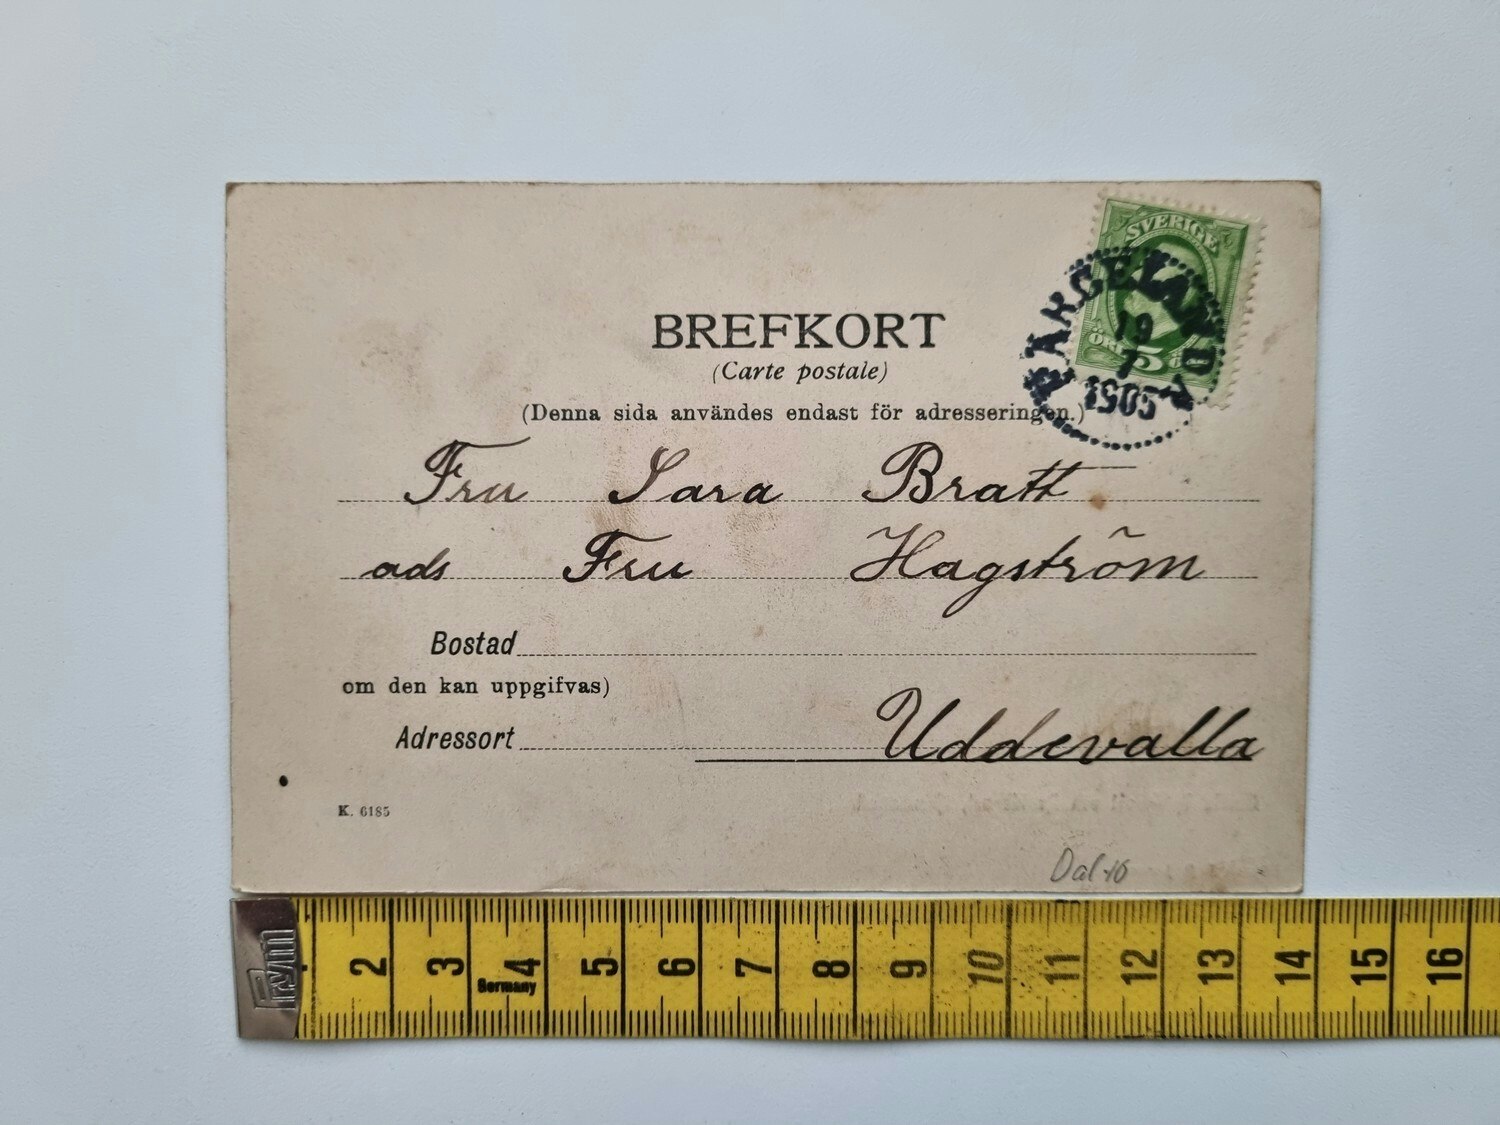 SVERIGE
ÖRE 5
FÄRGELANDA
19
7
1905
BREFKORT
(Carte postale)
(Denna sida användes endast för adresseringen.)
Fru Sara Bratt
ads Fru Hagström
Bostad
om den kan uppgifvas)
Adressort Uddevalla
K. 6185
Dal
Prym
2 3 4 5 6 7 8 9 10 11 12 13 14 15 16
Germany